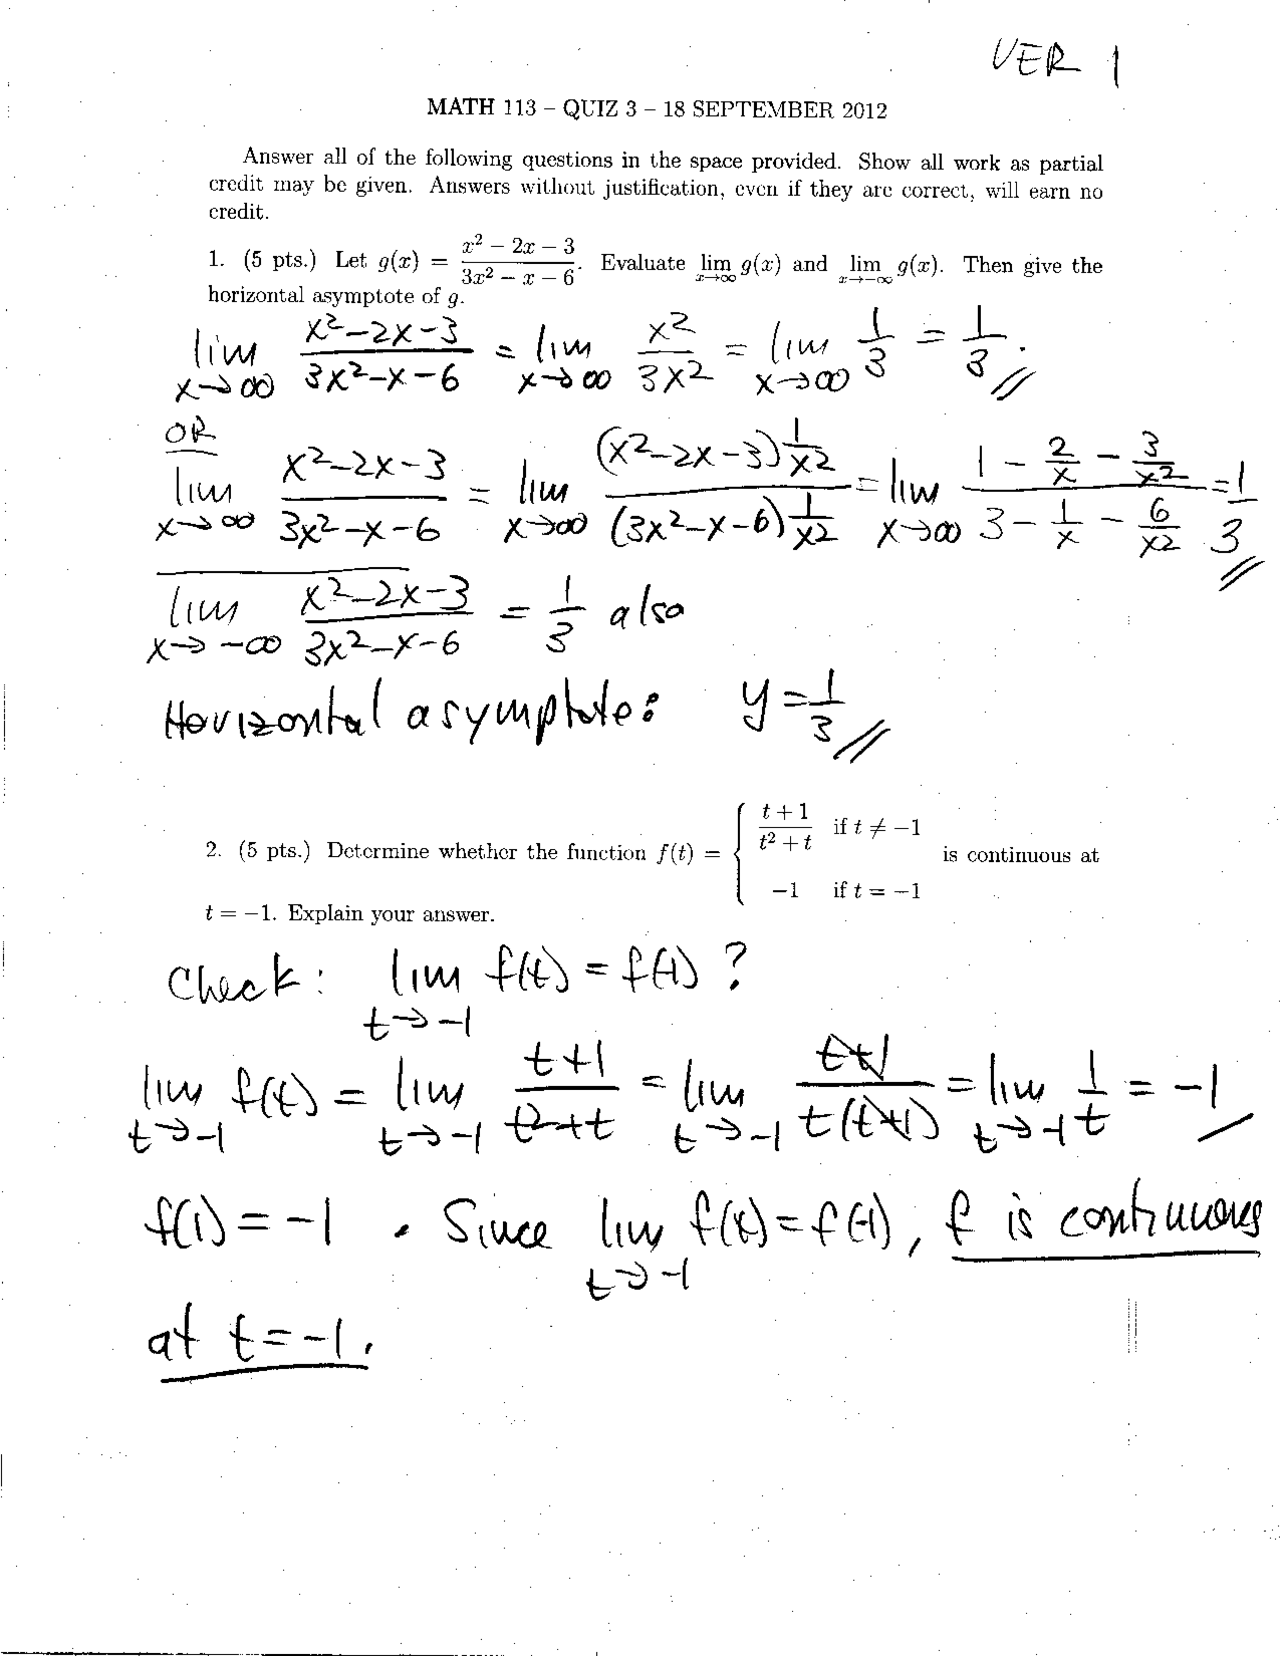 VER 1
MATH 113 – QUIZ 3 – 18 SEPTEMBER 2012
Answer all of the following questions in the space provided. Show all work as partial
credit may be given. Answers without justification, even if they are correct, will earn no
credit.
1. (5 pts.) Let g(x) = (x² − 2x − 3)/(3x² − x − 6). Evaluate lim x→∞ g(x) and lim x→−∞ g(x). Then give the
horizontal asymptote of g.
lim x→∞ (x²−2x−3)/(3x²−x−6) = lim x→∞ x²/3x² = lim x→∞ 1/3 = 1/3.
OR
lim x→∞ (x²−2x−3)/(3x²−x−6) = lim x→∞ ((x²−2x−3) 1/x²)/((3x²−x−6) 1/x²) = lim x→∞ (1 − 2/x − 3/x²)/(3 − 1/x − 6/x²) = 1/3
lim x→−∞ (x²−2x−3)/(3x²−x−6) = 1/3 also
Horizontal asymptote: y = 1/3
2. (5 pts.) Determine whether the function f(t) = { (t + 1)/(t² + t) if t ≠ −1
−1 if t = −1
is continuous at
t = −1. Explain your answer.
Check: lim t→−1 f(t) = f(-1) ?
lim t→−1 f(t) = lim t→−1 (t+1)/(t²+t) = lim t→−1 (t+1)/(t(t+1)) = lim t→−1 1/t = −1
f(1) = −1 . Since lim t→−1 f(t) = f(-1), f is continuous
at t = −1.